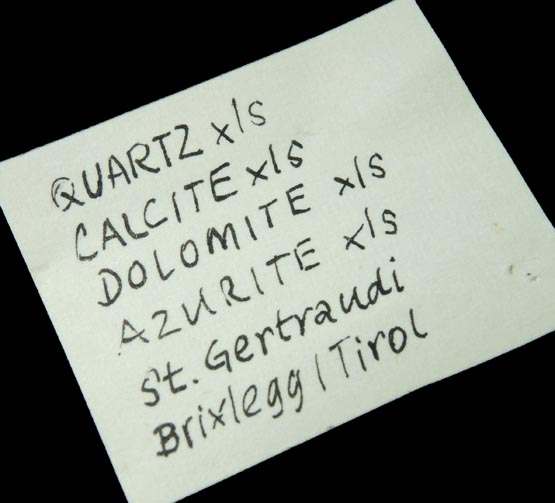 QUARTZ x/s
CALCITE x/s
DOLOMITE x/s
AZURITE x/s
St. Gertraudi
Brixlegg / Tirol